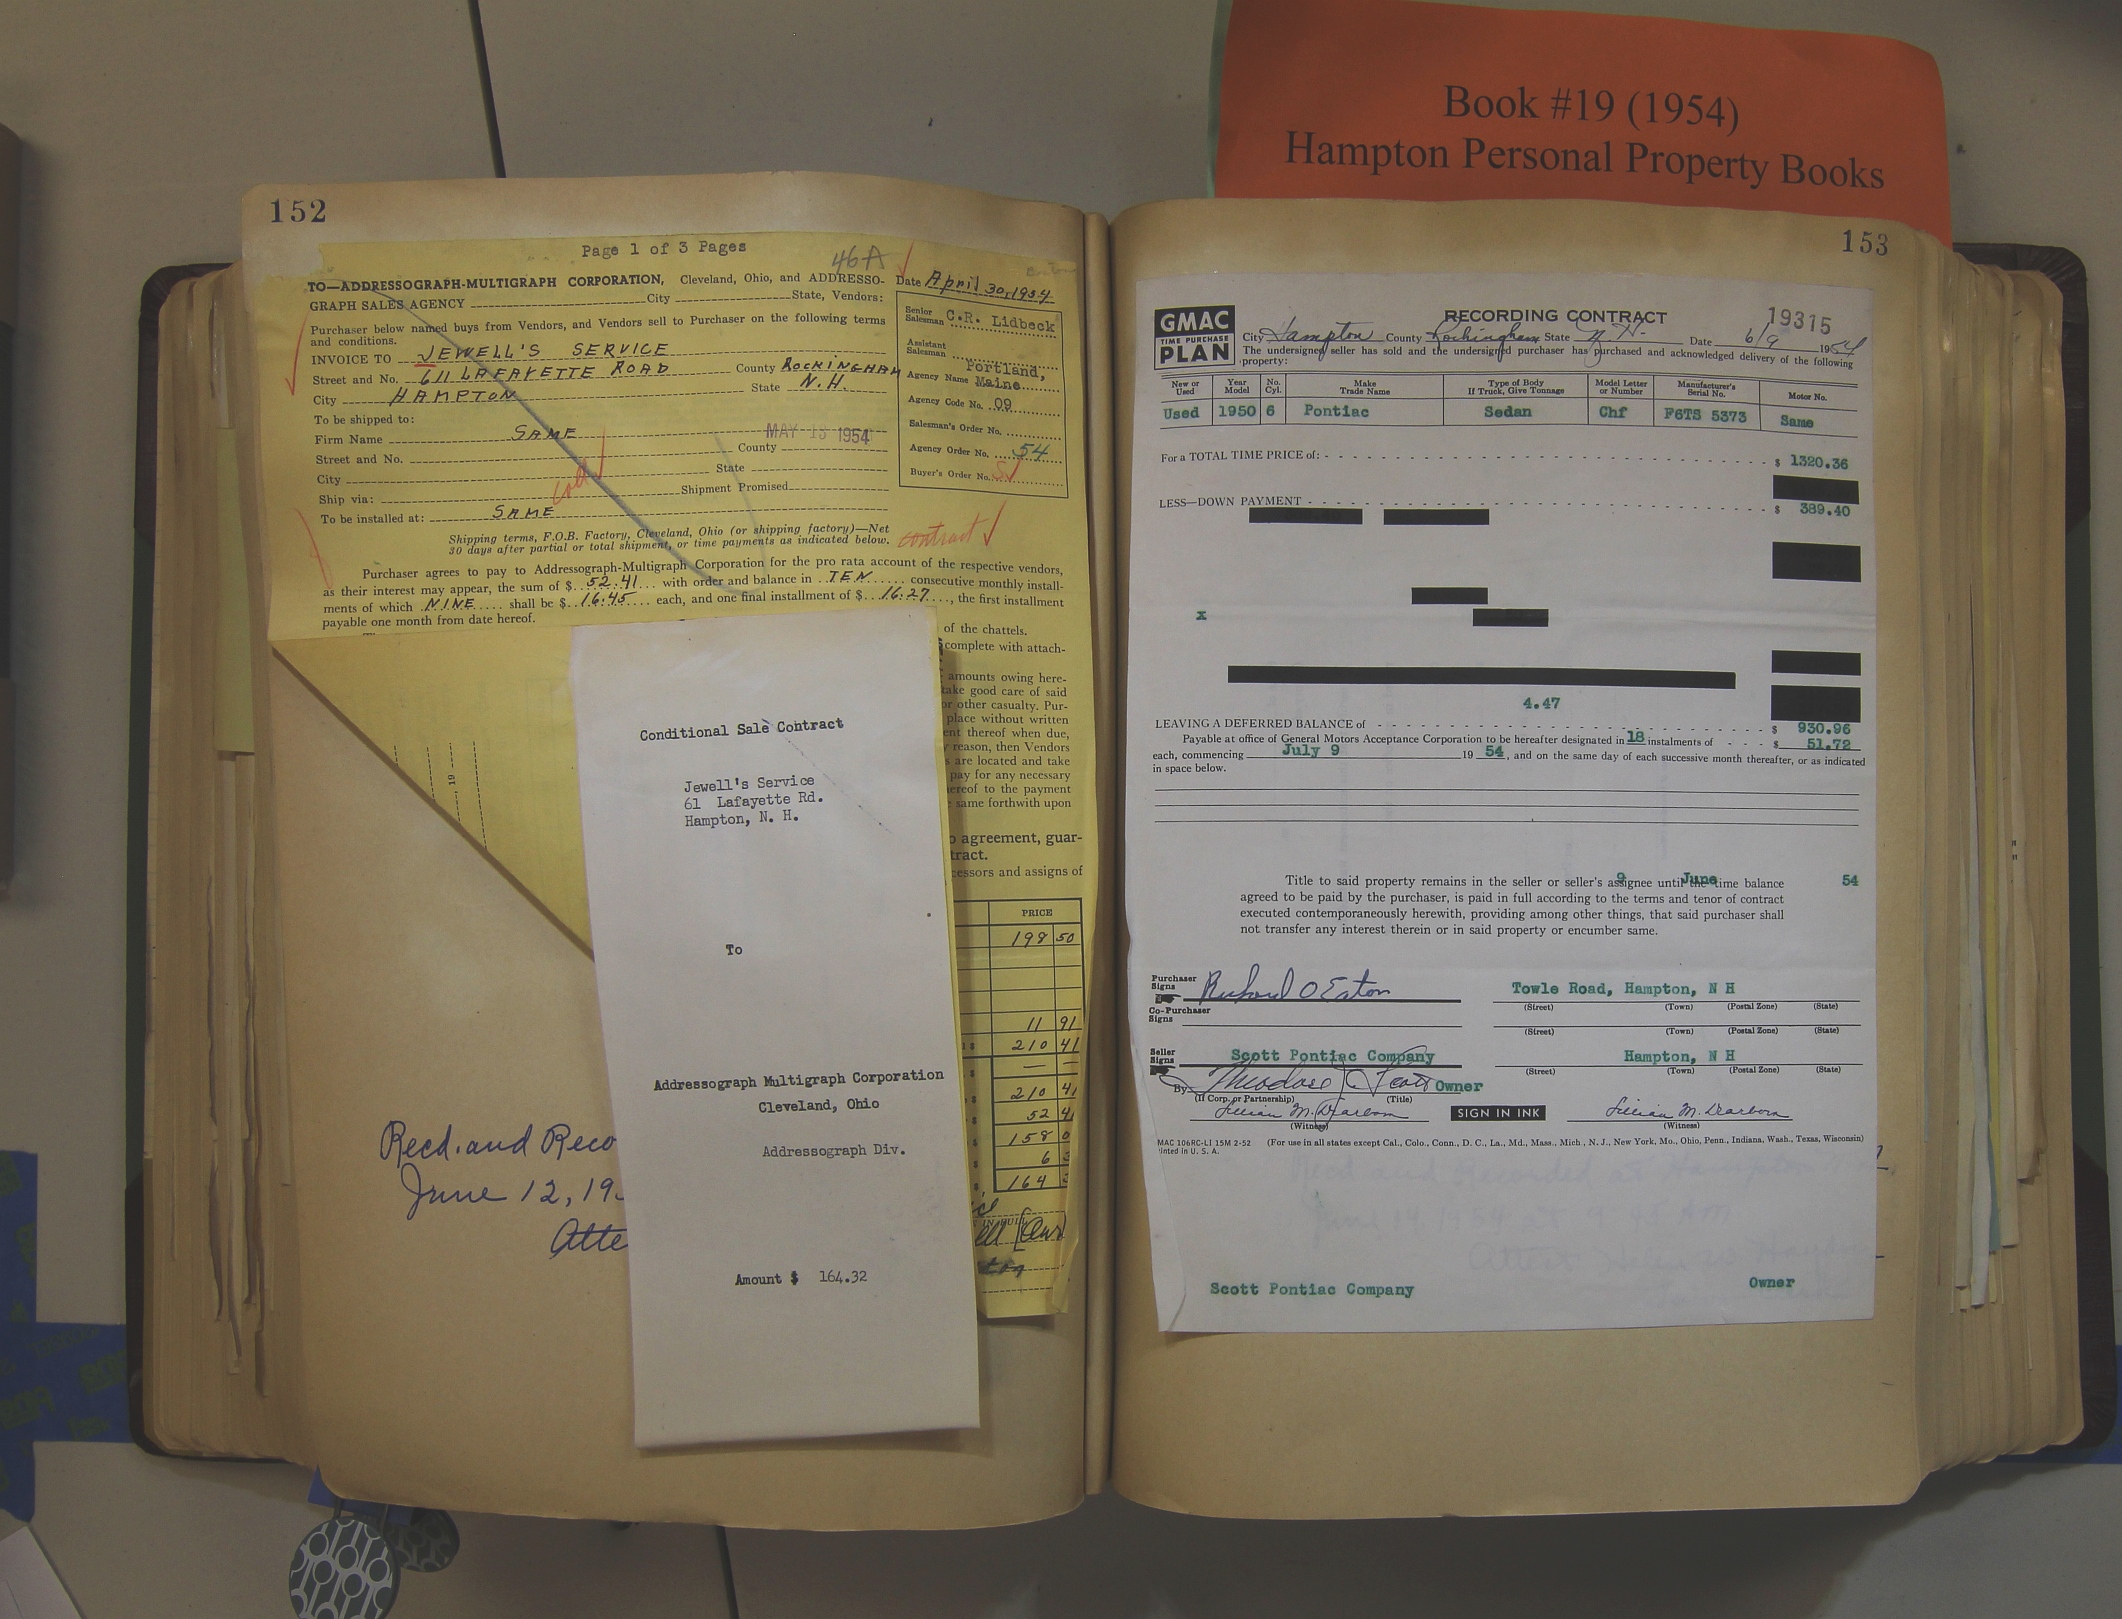 Book #19 (1954)
Hampton Personal Property Books
152
Page 1 of 3 Pages
46A
TO—ADDRESSOGRAPH-MULTIGRAPH CORPORATION, Cleveland, Ohio, and ADDRESSO-
GRAPH SALES AGENCY City State, Vendors:
Purchaser below named buys from Vendors, and Vendors sell to Purchaser on the following terms
and conditions.
INVOICE TO JEWELL'S SERVICE
Street and No. 611 LAFAYETTE ROAD County ROCKINGHAM
City HAMPTON State N.H.
To be shipped to:
Firm Name SAME
MAY 13 1954
Street and No. County
City State
Ship via: Shipment Promised
To be installed at: SAME
Date April 30, 1954
Senior Salesman C.R. Lidbeck
Assistant Salesman
Agency Name Portland, Maine
Agency Code No. 09
Salesman's Order No.
Agency Order No. 54
Buyer's Order No.
Shipping terms, F.O.B. Factory, Cleveland, Ohio (or shipping factory)—Net
30 days after partial or total shipment, or time payments as indicated below.
contract
Purchaser agrees to pay to Addressograph-Multigraph Corporation for the pro rata account of the respective vendors,
as their interest may appear, the sum of $ 52.41 with order and balance in TEN consecutive monthly install-
ments of which NINE shall be $ 16.45 each, and one final installment of $ 16.27, the first installment
payable one month from date hereof.
of the chattels.
complete with attach-
amounts owing here-
take good care of said
or other casualty. Pur-
place without written
ent thereof when due,
reason, then Vendors
are located and take
pay for any necessary
hereof to the payment
same forthwith upon
agreement, guar-
tract.
cessors and assigns of
PRICE
198 50
11 91
210 41
210 41
52 41
158 0
6
164
, 19
Conditional Sale Contract
Jewell's Service
61 Lafayette Rd.
Hampton, N. H.
To
Addressograph Multigraph Corporation
Cleveland, Ohio
Addressograph Div.
Amount $ 164.32
Recd. and Reco
June 12, 19
Atte
153
GMAC
TIME PURCHASE
PLAN
RECORDING CONTRACT
19315
City Hampton County Rockingham State N. H. Date 6/9 1954
The undersigned seller has sold and the undersigned purchaser has purchased and acknowledged delivery of the following
property:
New or Used Year Model No. Cyl. Make Trade Name Type of Body If Truck, Give Tonnage Model Letter or Number Manufacturer's Serial No. Motor No.
Used 1950 6 Pontiac Sedan Chf F6TS 5373 Same
For a TOTAL TIME PRICE of: $ 1320.36
LESS—DOWN PAYMENT $ 389.40
x
4.47
LEAVING A DEFERRED BALANCE of $ 930.96
Payable at office of General Motors Acceptance Corporation to be hereafter designated in 18 instalments of $ 51.72
each, commencing July 9 19 54, and on the same day of each successive month thereafter, or as indicated
in space below.
9 June 54
Title to said property remains in the seller or seller's assignee until the time balance
agreed to be paid by the purchaser, is paid in full according to the terms and tenor of contract
executed contemporaneously herewith, providing among other things, that said purchaser shall
not transfer any interest therein or in said property or encumber same.
Purchaser Signs Richard O Eaton Towle Road, Hampton, N H
(Street) (Town) (Postal Zone) (State)
Co-Purchaser Signs
(Street) (Town) (Postal Zone) (State)
Seller Signs Scott Pontiac Company Hampton, N H
(Street) (Town) (Postal Zone) (State)
By Theodore C Scott Owner
(If Corp. or Partnership) (Title)
Lillian M. Dearborn SIGN IN INK Lillian M. Dearborn
(Witness) (Witness)
MAC 106RC-LI 15M 2-52 (For use in all states except Cal., Colo., Conn., D. C., La., Md., Mass., Mich., N. J., New York, Mo., Ohio, Penn., Indiana, Wash., Texas, Wisconsin)
inted in U. S. A.
Scott Pontiac Company Owner